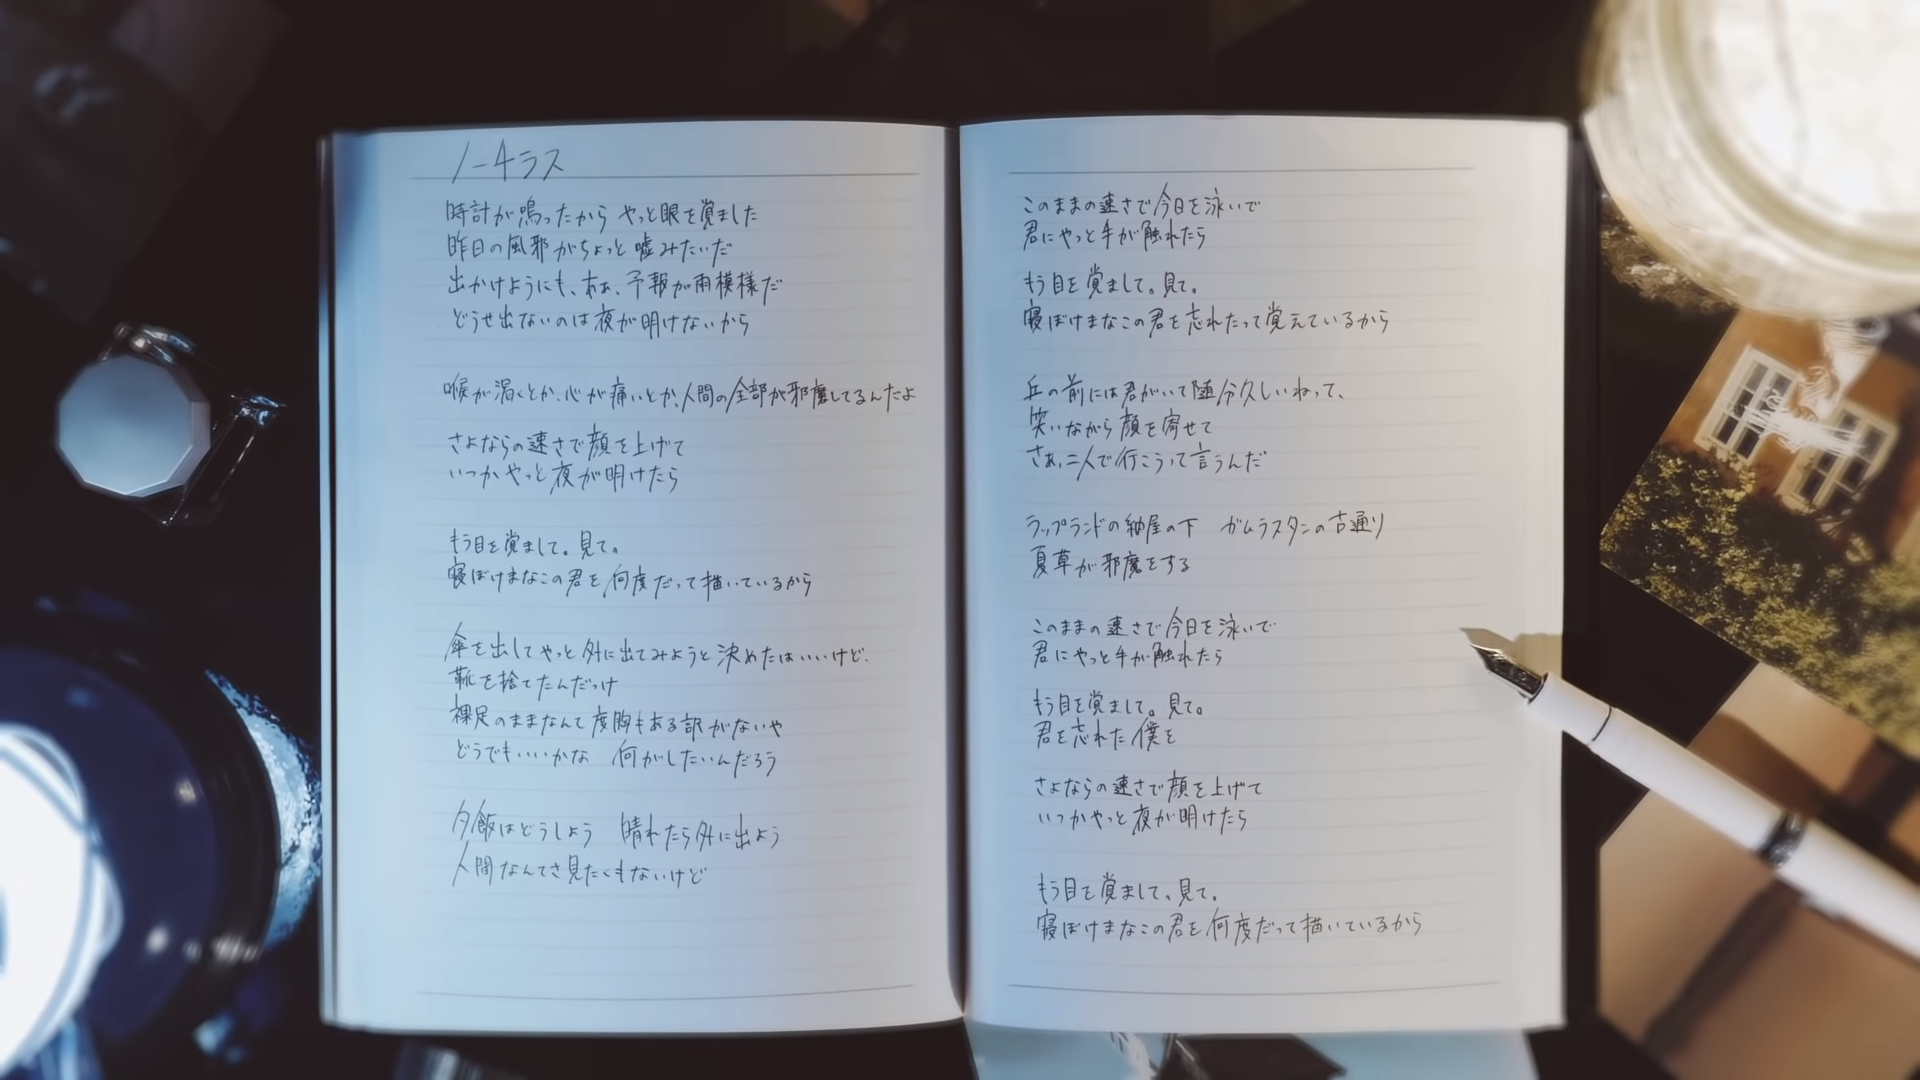 ノーチラス
時計が鳴ったから やっと眼を覚ました
昨日の風邪がちょっと嘘みたいだ
出かけようにも、ああ、予報が雨模様だ
どうせ出ないのは夜が明けないから
喉が渇くとか、心が痛いとか、人間の全部が邪魔してるんだよ
さよならの速さで顔を上げて
いつかやっと夜が明けたら
もう目を覚まして。見て。
寝ぼけまなこの君を何度だって描いているから
傘を出してやっと外に出てみようと決めたはいいけど、
靴を捨てたんだっけ
裸足のままなんて度胸もある訳がないや
どうでもいいかな 何がしたいんだろう
夕飯はどうしよう 晴れたら外に出よう
人間なんてさ見たくもないけど
このままの速さで今日を泳いで
君にやっと手が触れたら
もう目を覚まして。見て。
寝ぼけまなこの君を忘れたって覚えているから
丘の前には君がいて随分久しいねって、
笑いながら顔を寄せて
さぁ、二人で行こうって言うんだ
ラップランドの納屋の下 ガムラスタンの古通り
夏草が邪魔をする
このままの速さで今日を泳いで
君にやっと手が触れたら
もう目を覚まして。見て。
君を忘れた僕を
さよならの速さで顔を上げて
いつかやっと夜が明けたら
もう目を覚まして、見て。
寝ぼけまなこの君を何度だって描いているから